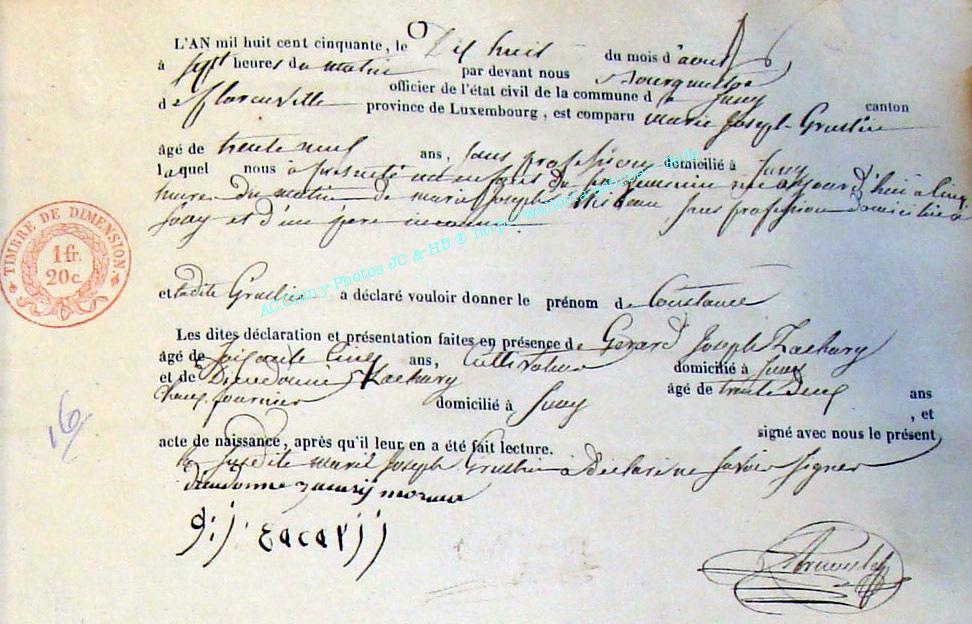 L'AN mil huit cent cinquante, le Dix huit du mois d'aout
à sept heures du matin par devant nous
officier de l'état civil de la commune d e Jucy
d e Florenville province de Luxembourg, est comparu Marie Joseph Gruslin canton
âgé de trente neuf ans, sans profession domicilié à Jucy
laquel nous à présenté un enfant du sexe feminin né aujourd'hui à cinq
heures du matin de marie Joseph sans profession domiciliée à
Jucy et d'un père inconnu
TIMBRE DE DIMENSION
1 fr.
20 c.
et ladite Gruslin a déclaré vouloir donner le prénom de Constance
AC.Chiny-Photos JC & HB ©
Les dites déclaration et présentation faites en présence de Gerard Joseph Zachary
âgé de soixante cinq ans, Cultivateur domicilié à Jucy
et de Dieudonné Zachary âgé de trente deux ans
chauffournier domicilié à Jucy , et
16
signé avec nous le présent
acte de naissance, après qu'il leur en a été fait lecture.
la susdite marie Joseph Gruslin à déclaré ne savoir signer
dieudonne
g:j: zacarjj